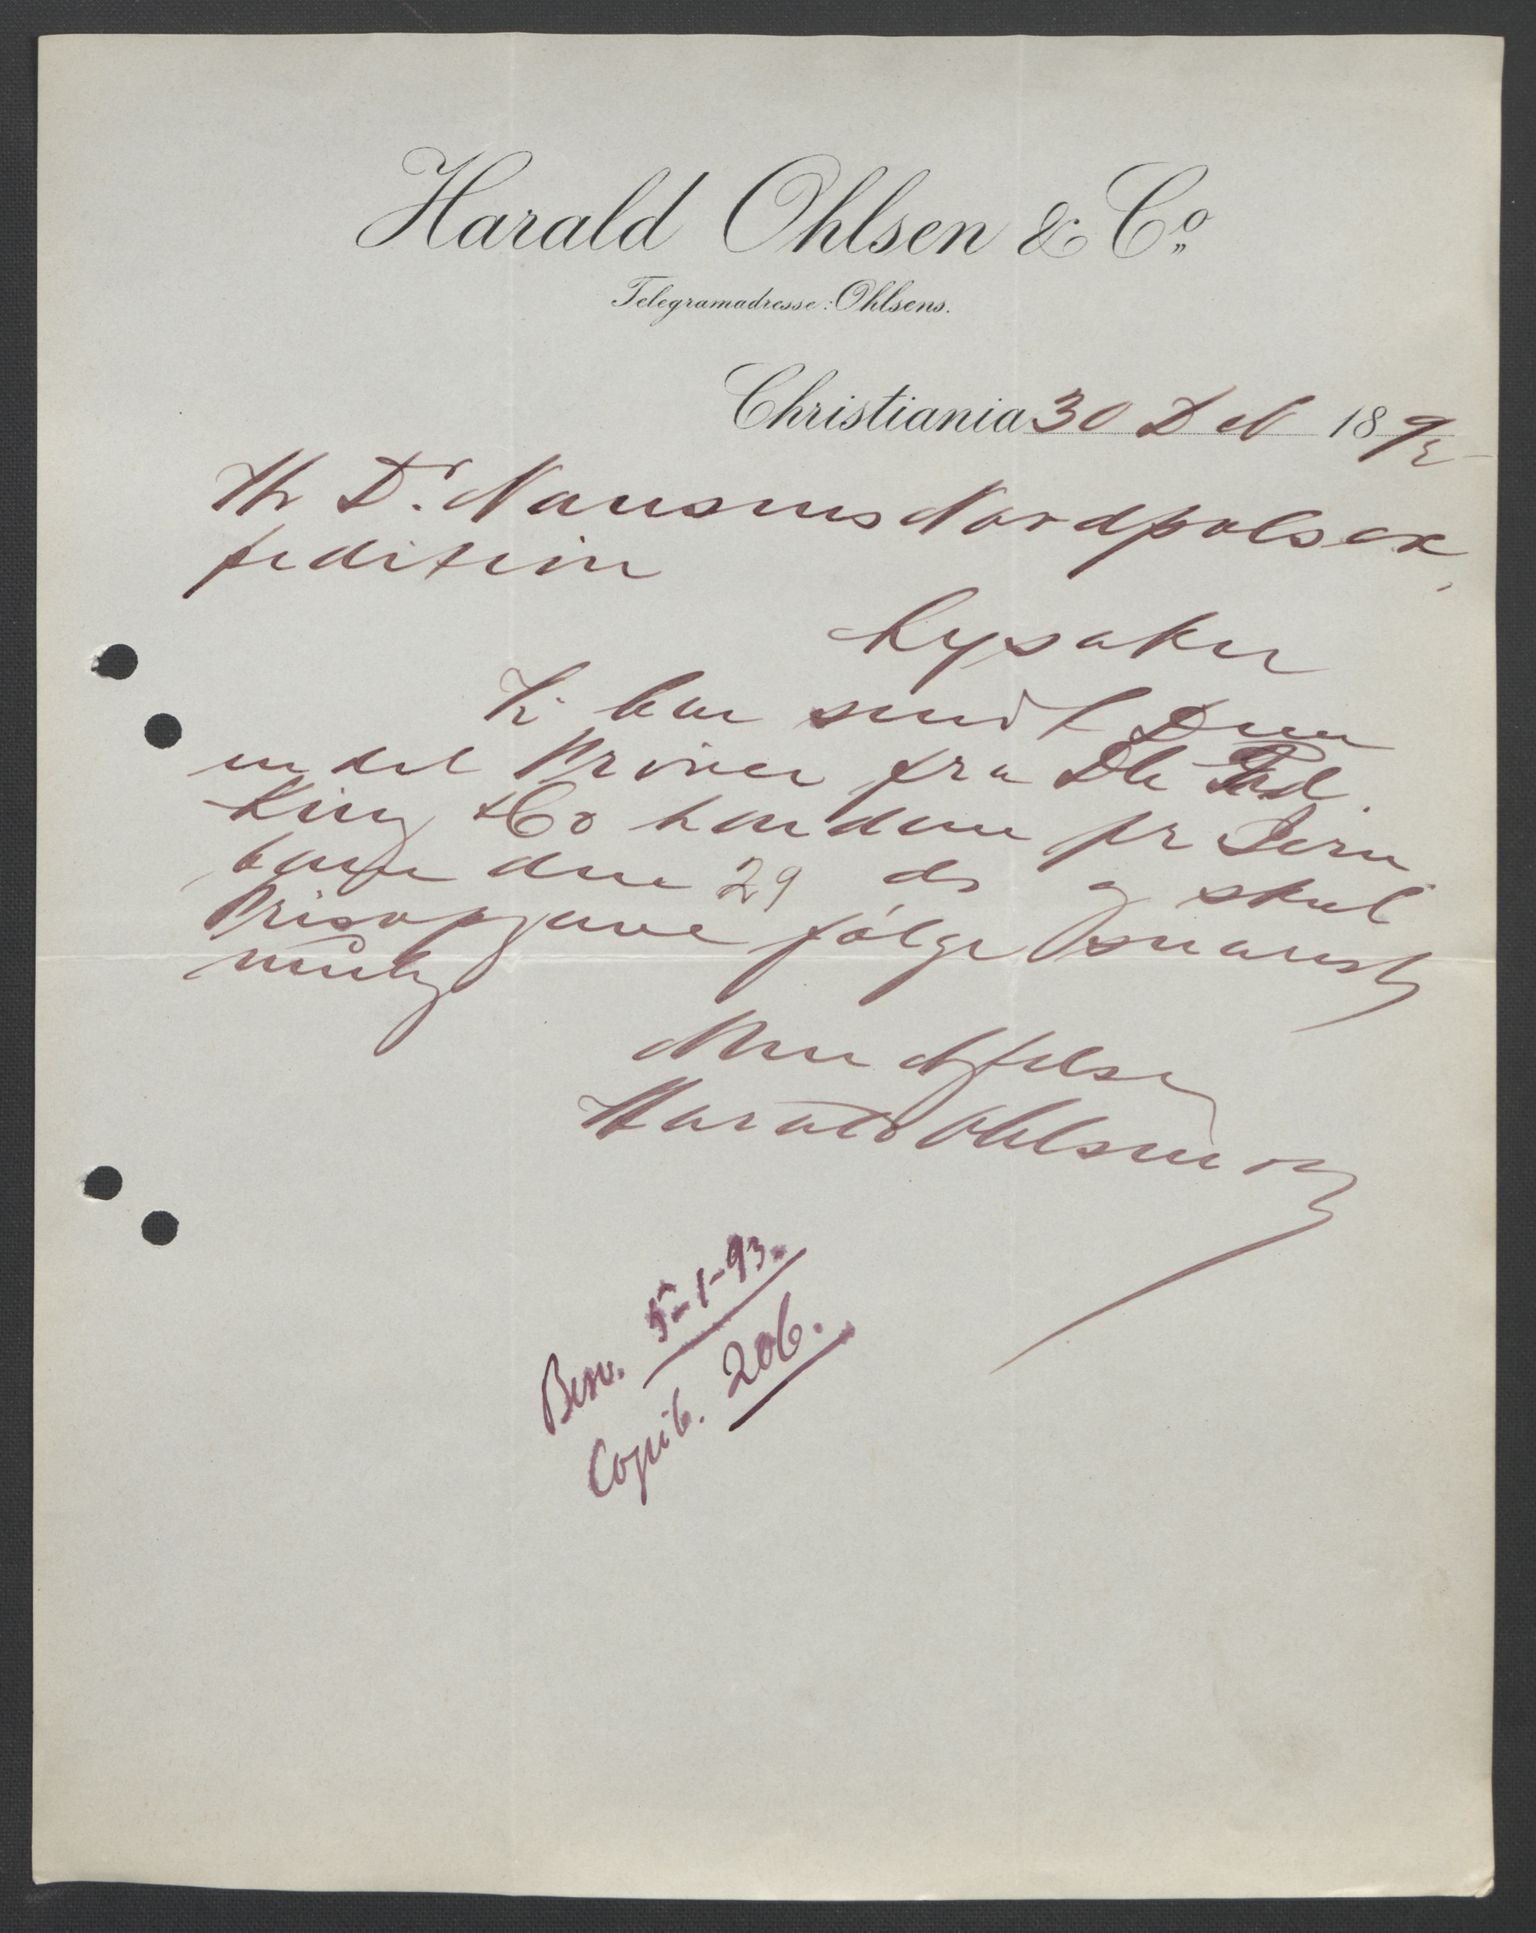 Harald Ohlsen & Co.
Telegramadresse: Ohlsens.
Christiania 30 Dec 1892
Hr Dr. Nansens Nordpolsex
pedition
Lysaker
Vi har sendt Dem
en del Prøver fra De Hrd.
King & Co London pr Jern
bane den 29 ds og skal
Prisopgave følge snarest
mulig
Med Agtelse
Harald Ohlsen & Co
Besv. 5-1-93.
Copib. 206.